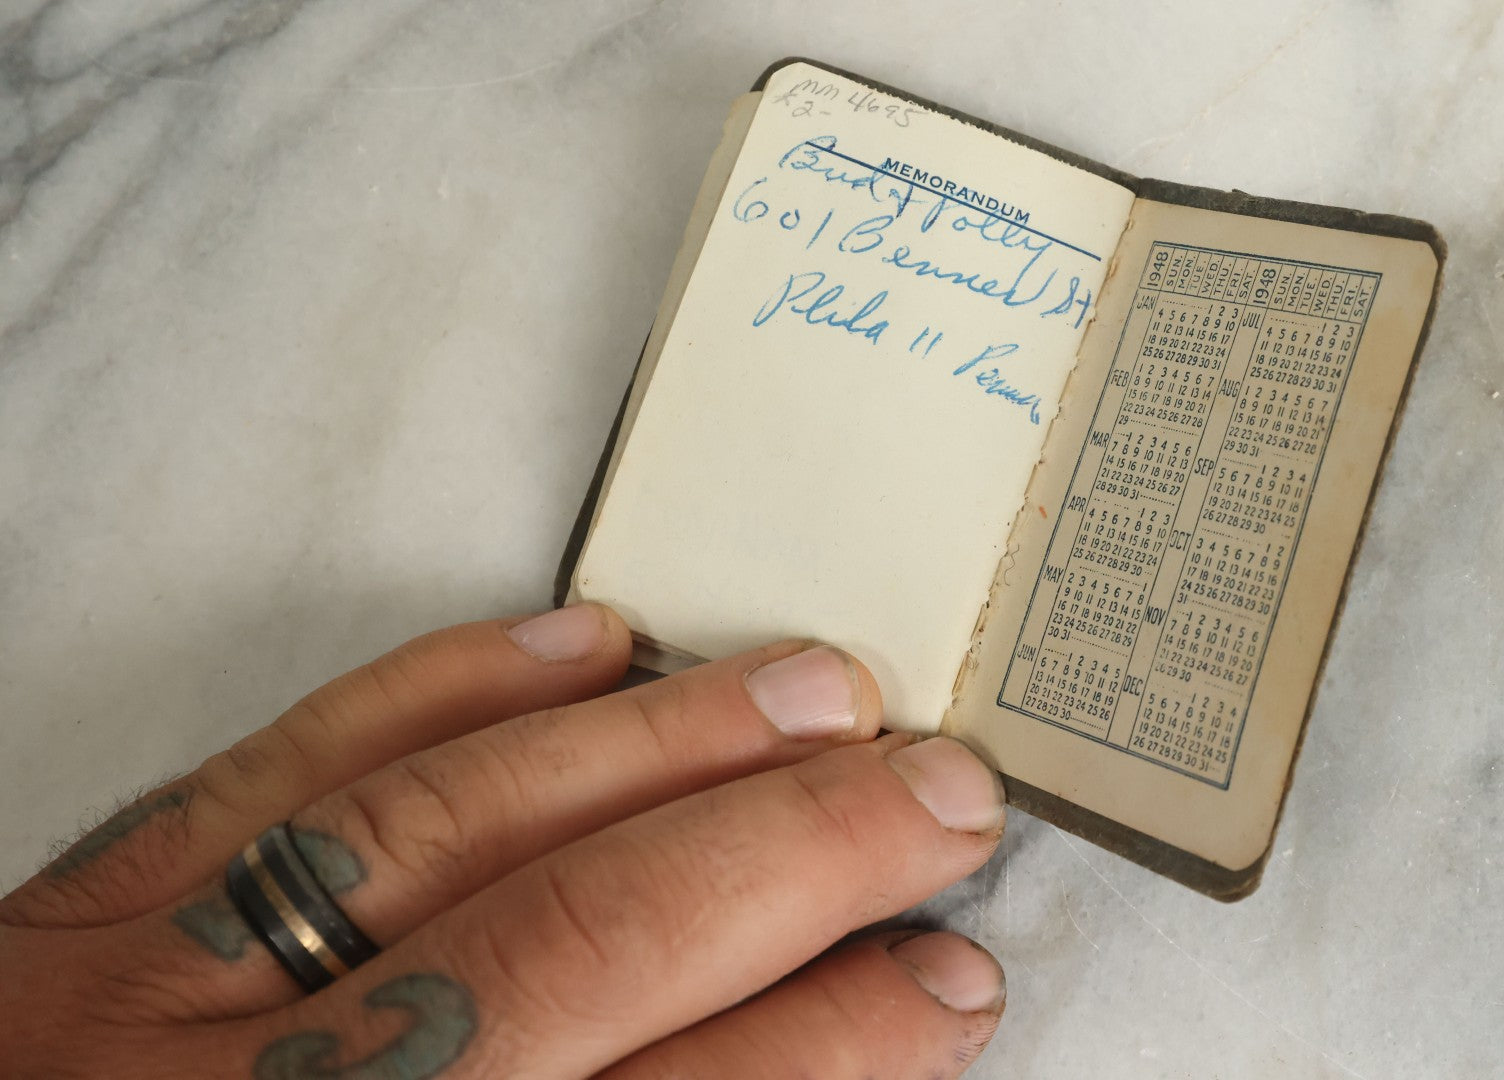 MM 4695
2-
MEMORANDUM
Bud & Polly
601 Benner St
Phila 11 Penna.
1948 SUN. MON. TUE. WED. THU. FRI. SAT.
JAN 1 2 3
4 5 6 7 8 9 10
11 12 13 14 15 16 17
18 19 20 21 22 23 24
25 26 27 28 29 30 31
FEB 1 2 3 4 5 6 7
8 9 10 11 12 13 14
15 16 17 18 19 20 21
22 23 24 25 26 27 28
29
MAR 1 2 3 4 5 6
7 8 9 10 11 12 13
14 15 16 17 18 19 20
21 22 23 24 25 26 27
28 29 30 31
APR 1 2 3
4 5 6 7 8 9 10
11 12 13 14 15 16 17
18 19 20 21 22 23 24
25 26 27 28 29 30
MAY 1
2 3 4 5 6 7 8
9 10 11 12 13 14 15
16 17 18 19 20 21 22
23 24 25 26 27 28 29
30 31
JUN 1 2 3 4 5
6 7 8 9 10 11 12
13 14 15 16 17 18 19
20 21 22 23 24 25 26
27 28 29 30
1948 SUN. MON. TUE. WED. THU. FRI. SAT.
JUL 1 2 3
4 5 6 7 8 9 10
11 12 13 14 15 16 17
18 19 20 21 22 23 24
25 26 27 28 29 30 31
AUG 1 2 3 4 5 6 7
8 9 10 11 12 13 14
15 16 17 18 19 20 21
22 23 24 25 26 27 28
29 30 31
SEP 1 2 3 4
5 6 7 8 9 10 11
12 13 14 15 16 17 18
19 20 21 22 23 24 25
26 27 28 29 30
OCT 1 2
3 4 5 6 7 8 9
10 11 12 13 14 15 16
17 18 19 20 21 22 23
24 25 26 27 28 29 30
31
NOV 1 2 3 4 5 6
7 8 9 10 11 12 13
14 15 16 17 18 19 20
21 22 23 24 25 26 27
28 29 30
DEC 1 2 3 4
5 6 7 8 9 10 11
12 13 14 15 16 17 18
19 20 21 22 23 24 25
26 27 28 29 30 31